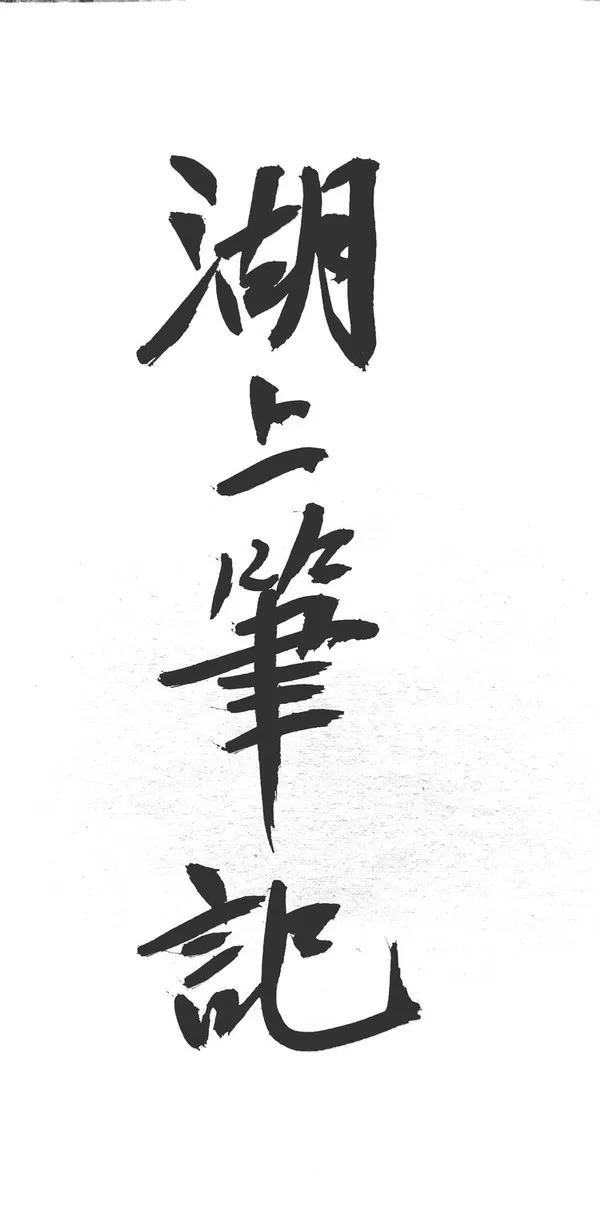 湖上筆記